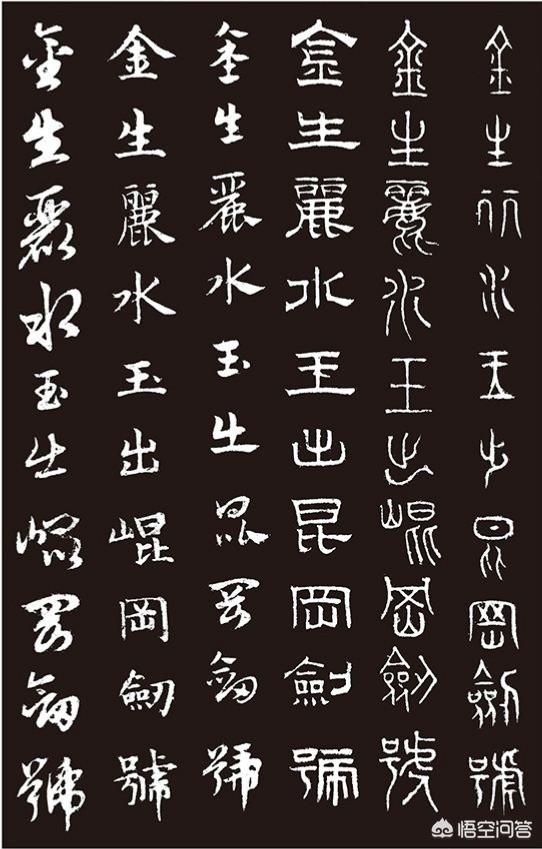 金生丽水玉出昆岡劍號
金生麗水玉出崐岡劍號
金生麗水玉出昆岡劍號
金生麗水玉出昆岡劒號
金生麗水玉出崐岡劒號
金生麗水玉出崐岡劒號
悟空问答